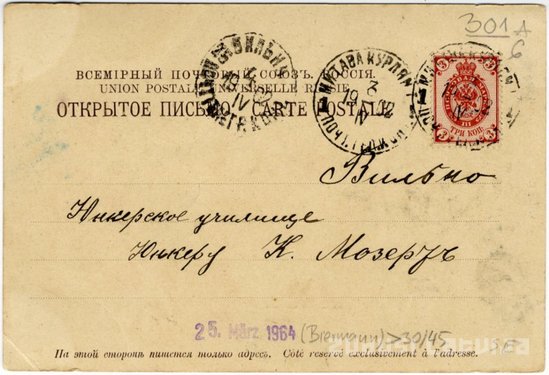 301 A
6
ВСЕМІРНЫЙ ПОЧТОВЫЙ СОЮЗЪ. РОССІЯ.
UNION POSTALE UNIVERSELLE RUSSIE
ОТКРЫТОЕ ПИСЬМО. CARTE POSTALE
МИТАВА КУРЛЯН.
3
IV
ТРИ КОП.
Вильно
Юнкерское училище
Юнкеру К. Мозертъ
25. März 1964 (Biermann) > 30/45
На этой сторонѣ пишется только адресъ. Côté réservé exclusivement à l'adresse.